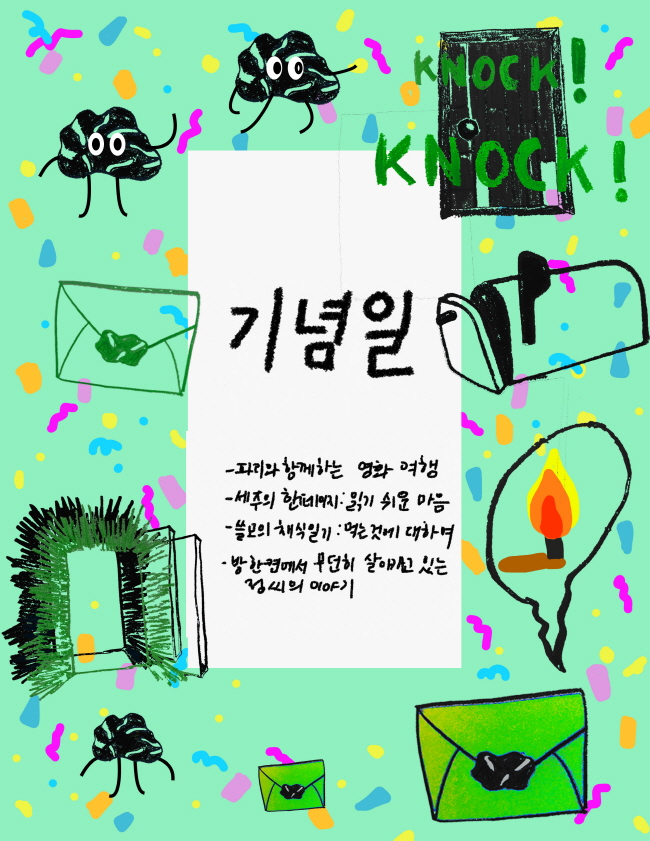 KNOCK!
KNOCK!
기념일
-파리와 함께하는 영화 여행
-세주의 한페이지: 읽기 쉬운 마음
-쓸모의 채식일기: 먹는것에 대하여
-방 한켠에서 무던히 살아가고 있는
정씨의 이야기